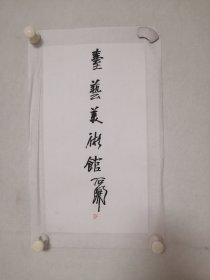 臺藝美術館